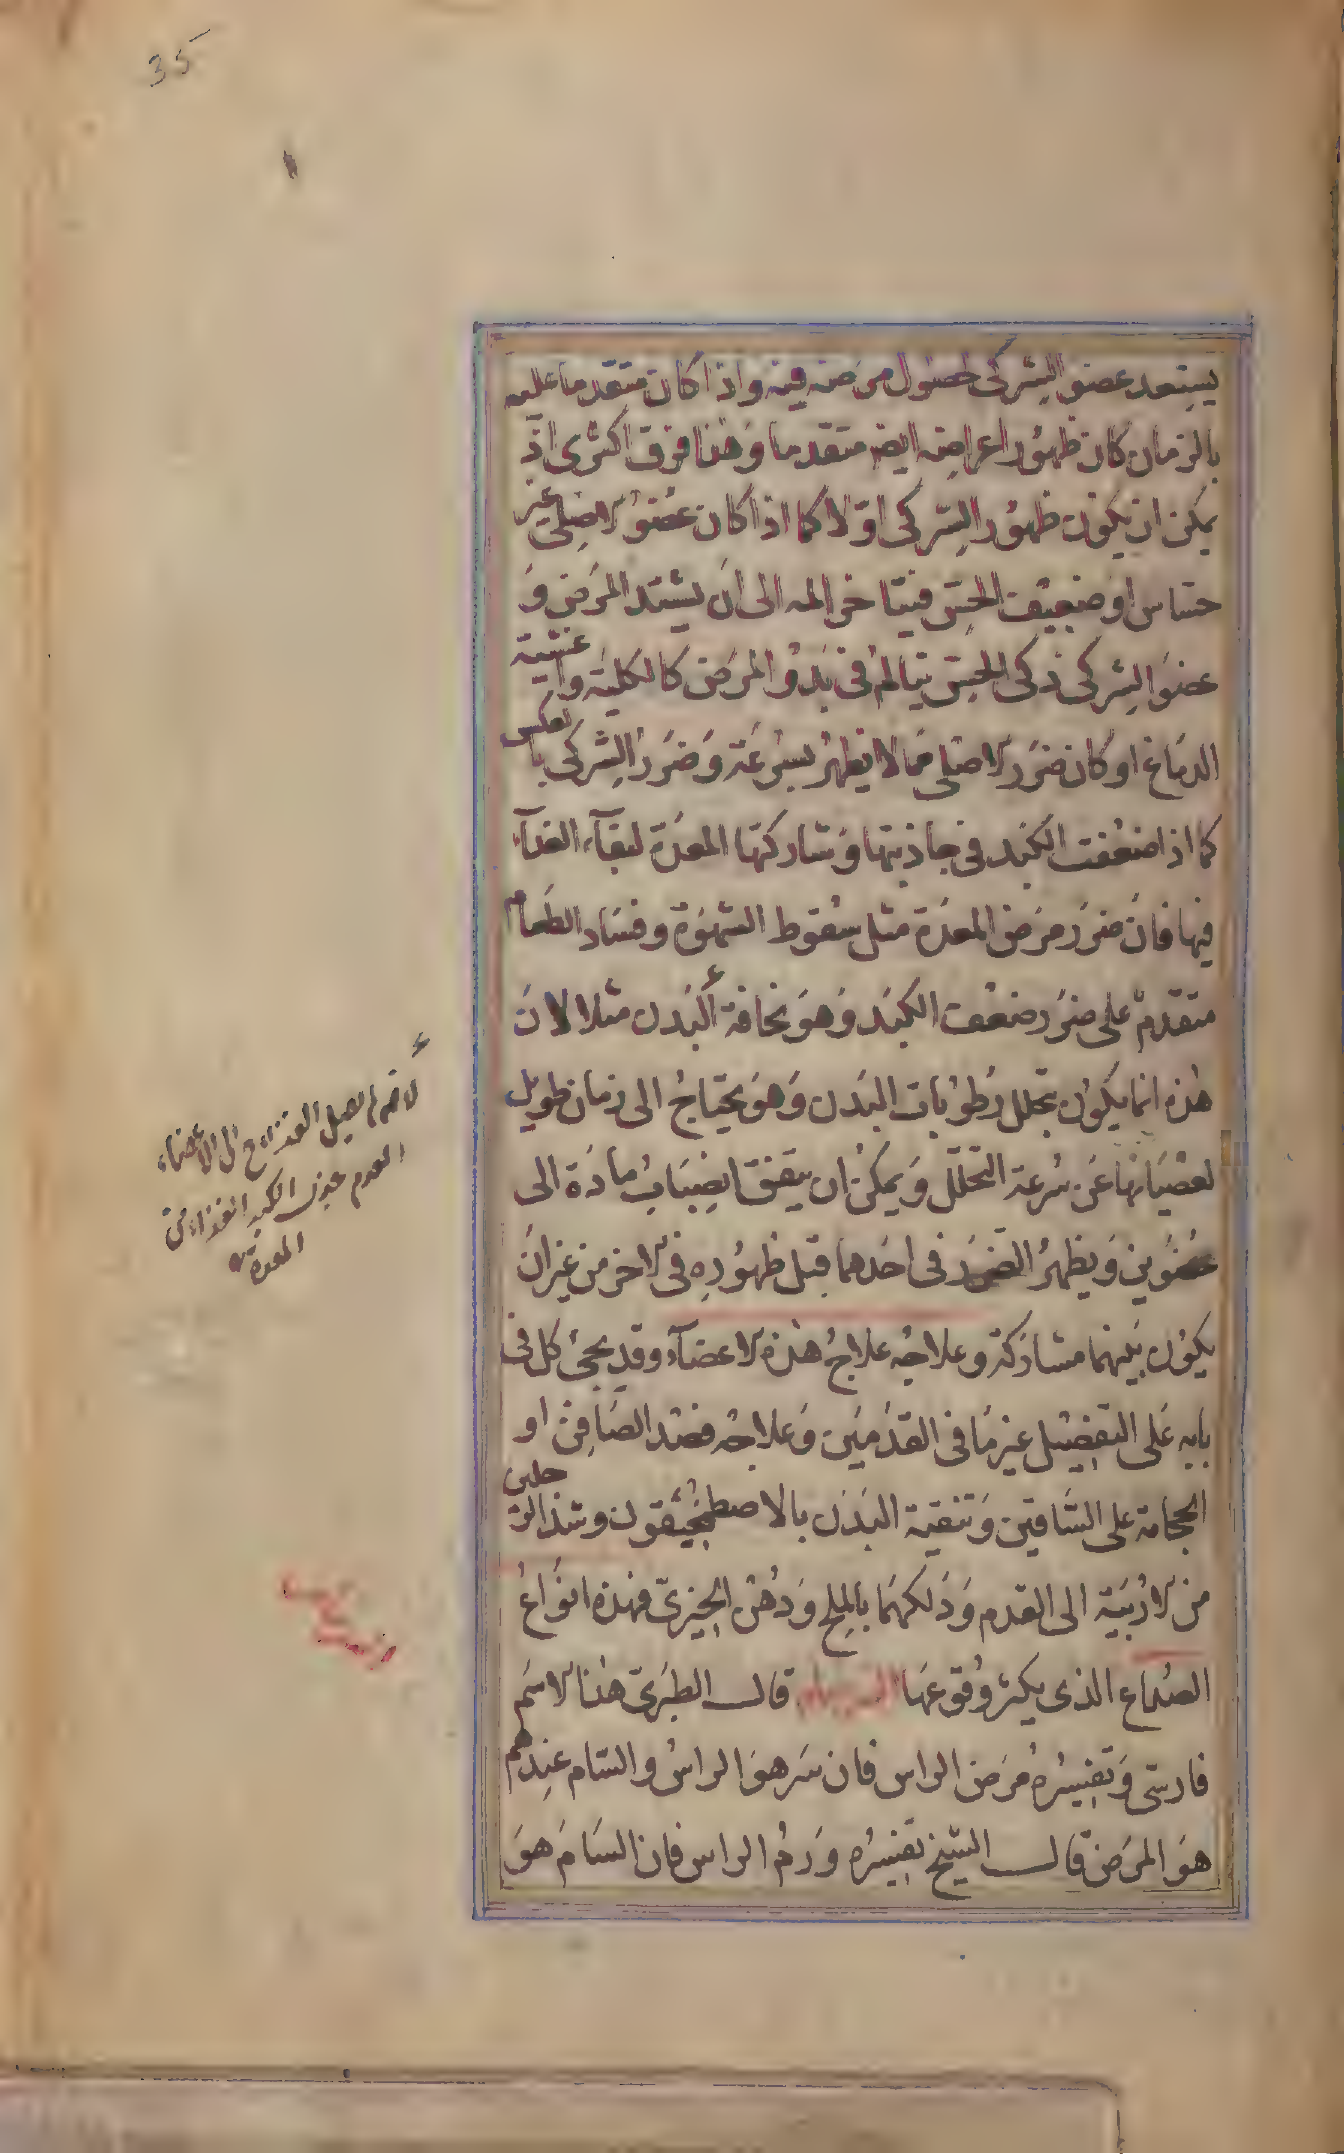 35
يستعد عضو الشركى لحصول مرضه فيه واذا كان متقدما عليه
بالزمان كان ظهور اعراضه ايض متقدما وهذا فرق اكثرى اذ
يمكن ان يكون ظهور الشركى اولا كما اذا كان عضو الاصلى غير
حساس او ضعيف الحس فيتاخر المه الى ان يشتد المرض و
عضو الشركى ذكى الحس يتالم فى بدو المرض كالكلية واغشية
الدماغ او كان ضرر الاصلى مما لا يظهر بسرعة وضرر الشركى بالعكس
كما اذا ضعفت الكبد فى جاذبتها وشاركتها المعدة لبقآء الغذآء
فيها فان ضرر مرض المعدة مثل سقوط الشهوة وفساد الطعام
متقدم على ضرر ضعف الكبد وهو نحافة البدن مثلا لان
هذه انما يكون بتحلل رطوبات البدن وهو يحتاج الى زمان طويل
لعصيانها عن سرعة التحلل ويمكن ان يتفق انصباب مادة الى
عضوين ويظهر الضرر فى احدهما قبل ظهوره فى الاخر من غير ان
يكون بينهما مشاركة وعلاجه علاج هذه الاعضآء وقد يجئ كل فى
بابه على التفصيل غير ما فى القدمين وعلاجه فصد الصافن او
الحجامة على الساقين وتنقية البدن بالاصطمخيقون وشد الرجلين
من الاربية الى القدم ودلكهما بالملح ودهن الخيرى فهذه انواع
الصداع الذى يكثر وقوعها السرسام قال الطبرى هذا الاسم
فارسى وتفسيره مرض الراس فان سر هو الراس والسام عندهم
هو المرض قال الشيخ تفسيره ورم الراس فان السام هو
لانه لم يصل الغذاء ح الى الاعضاء
لعدم جذب الكبد الغذاء من
المعدة